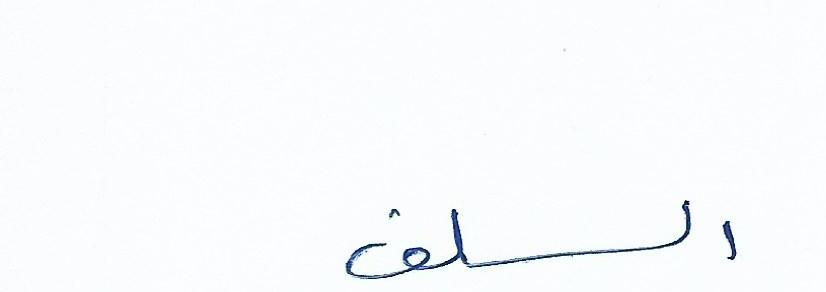 السلف